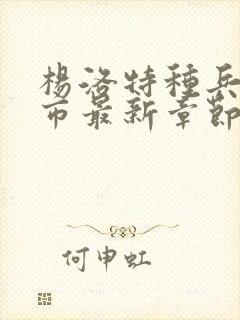 楊洛特種兵
市最新章節
何申虹